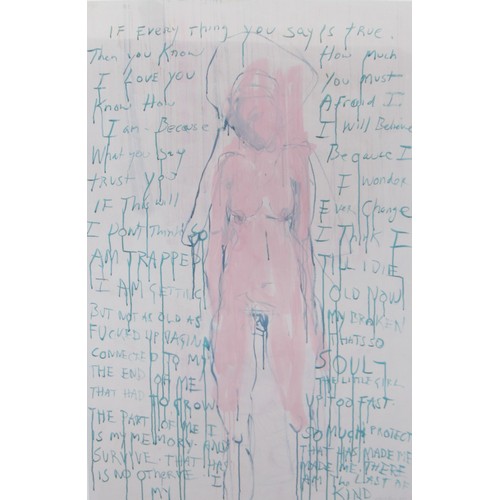 IF EVERY THING YOU SAY IS TRUE.
Then you Know How Much
I LOVE YOU You Must
Know How Afraid I
I am. Because I Will Behave
What you say Because I
trust you I wonder
IF This will Ever Change
I DONT Think so I Think I
AM TRAPPED TILL I DIE
I AM GETTING OLD NOW
BUT NOT AS OLD AS MY BROKEN
FUCKED UP VAGINA THATS SO
CONNECTED TO MY SOUL
THE END OF ME THE LITTLE GIRL
THAT HAD TO GROW UP TOO FAST
THE PART OF ME I SO MUCH PROTECT
IS MY MEMORY AND THAT HAS MADE ME
SURVIVE THAT HAS MADE ME THERE
IS NO OTHER I AM THE LAST OF
MY KIND